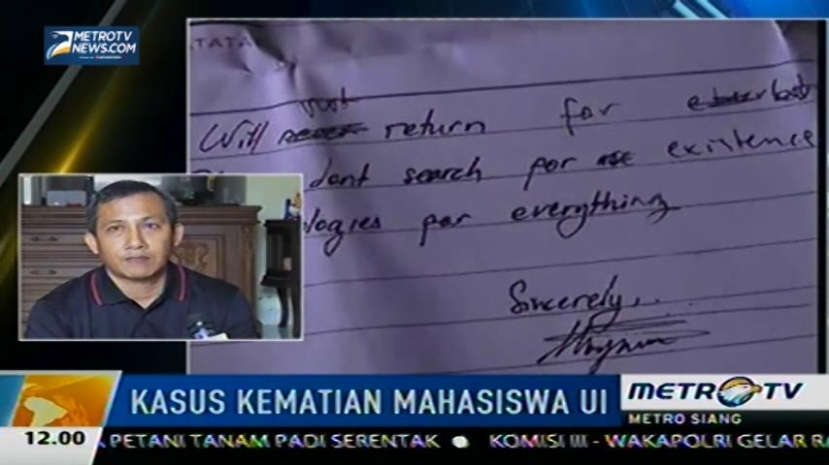 METROTV
NEWS.COM
TATA
Will not return for
dont search for existence
logies for everything
Sincerely,..
KASUS KEMATIAN MAHASISWA UI
METRO TV
METRO SIANG
12.00
PETANI TANAM PADI SERENTAK ● KOMISI III - WAKAPOLRI GELAR RA